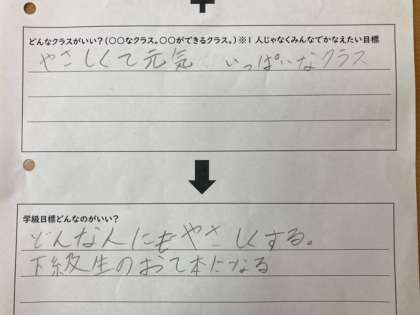 どんなクラスがいい?(〇〇なクラス。〇〇ができるクラス。)※1人じゃなくみんなでかなえたい目標
やさしくて元気 いっぱいなクラス
学級目標どんなのがいい?
どんな人にもやさしくする。
下級生のお手本になる